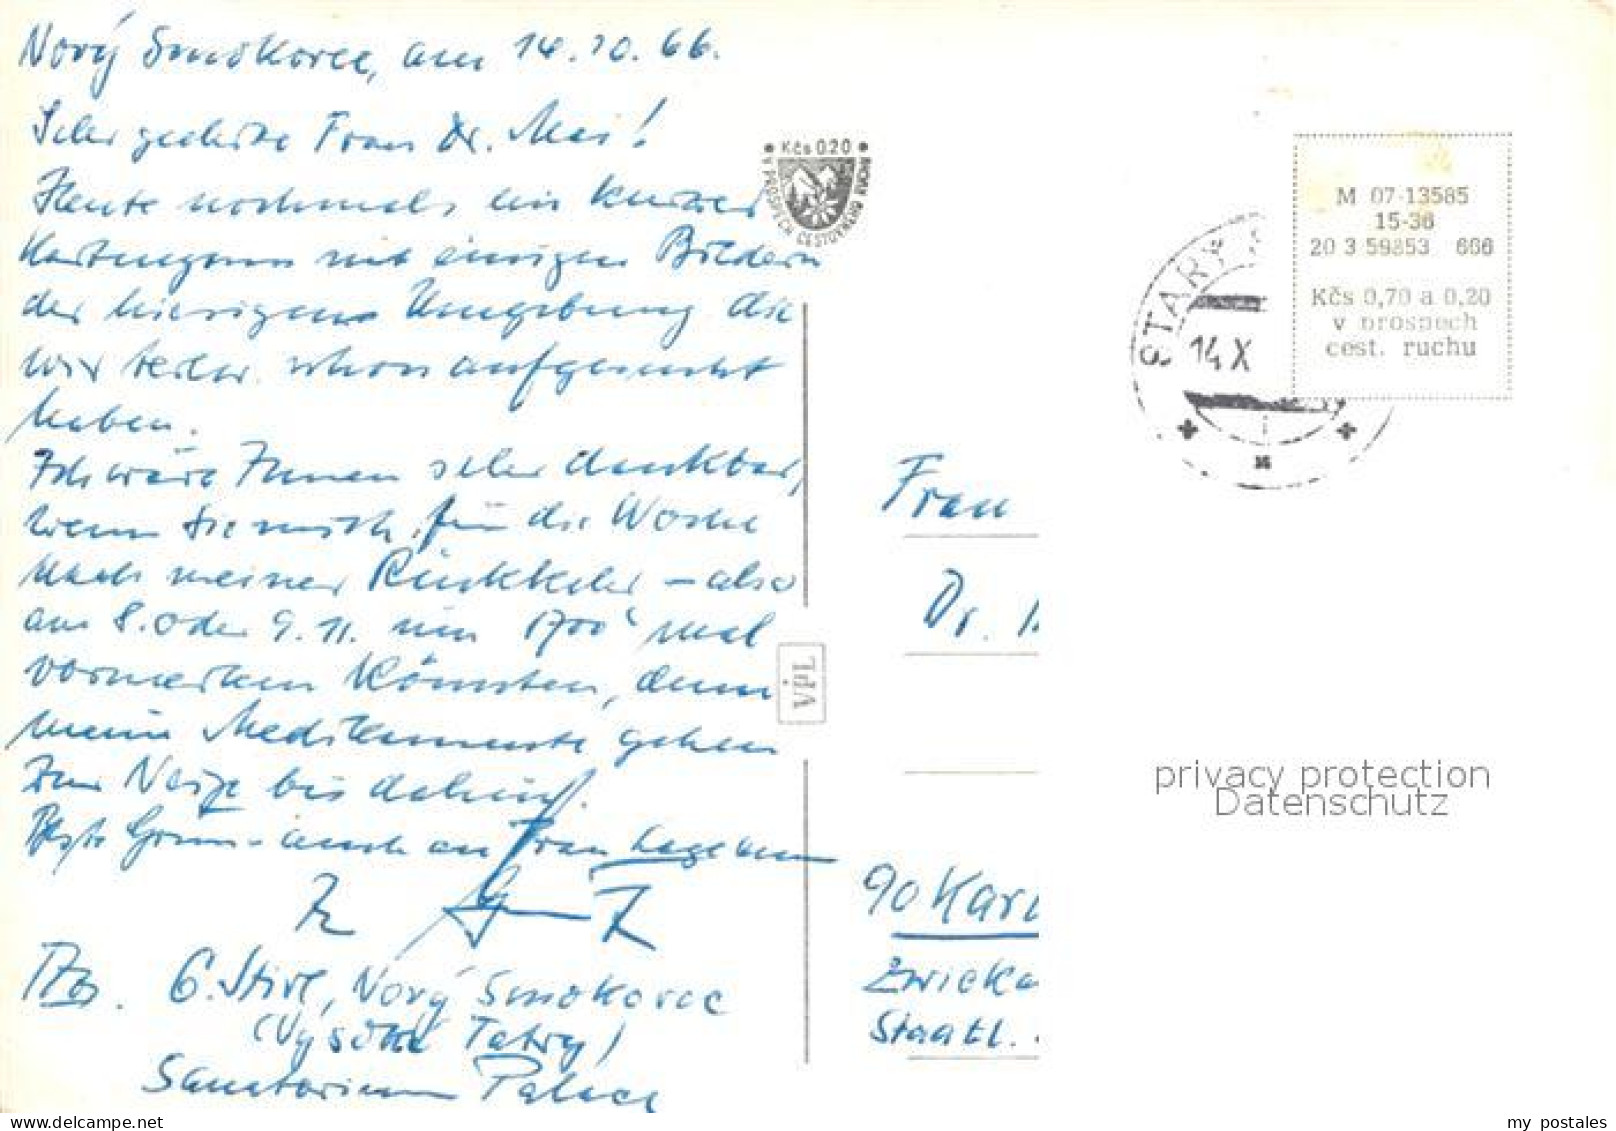 Nový Smokovec, am 14.10.66.
Sehr geehrte Frau Dr. Mai!
Heute nochmals ein kurzer
Kartengruss mit einigen Bildern
der hiesigen Umgebung die
wir teilw. schon aufgesucht
haben.
Ich wäre Ihnen sehr dankbar,
wenn Sie mich für die Woche
nach meiner Rückkehr – also
am 8. oder 9.11. um 1700 mal
vormerken könnten, denn
meine Medikamente gehen
zur Neige bis dahin.
Beste Grüsse auch an Frau
Ihr
Abs. G. Stirl, Nový Smokovec
(Vysoké Tatry)
Sanatorium Palace
• Kčs 0.20 •
V PROSPĚCH CESTOVNÉHO RUCHU
VPL
STARÝ
14 X
M 07-13585
15-36
20 3 59853 666
Kčs 0,70 a 0,20
v prospech
cest. ruchu
Frau
Dr.
90 Karl
Zwicka
Staatl.
privacy protection
Datenschutz
www.delcampe.net
my_postales